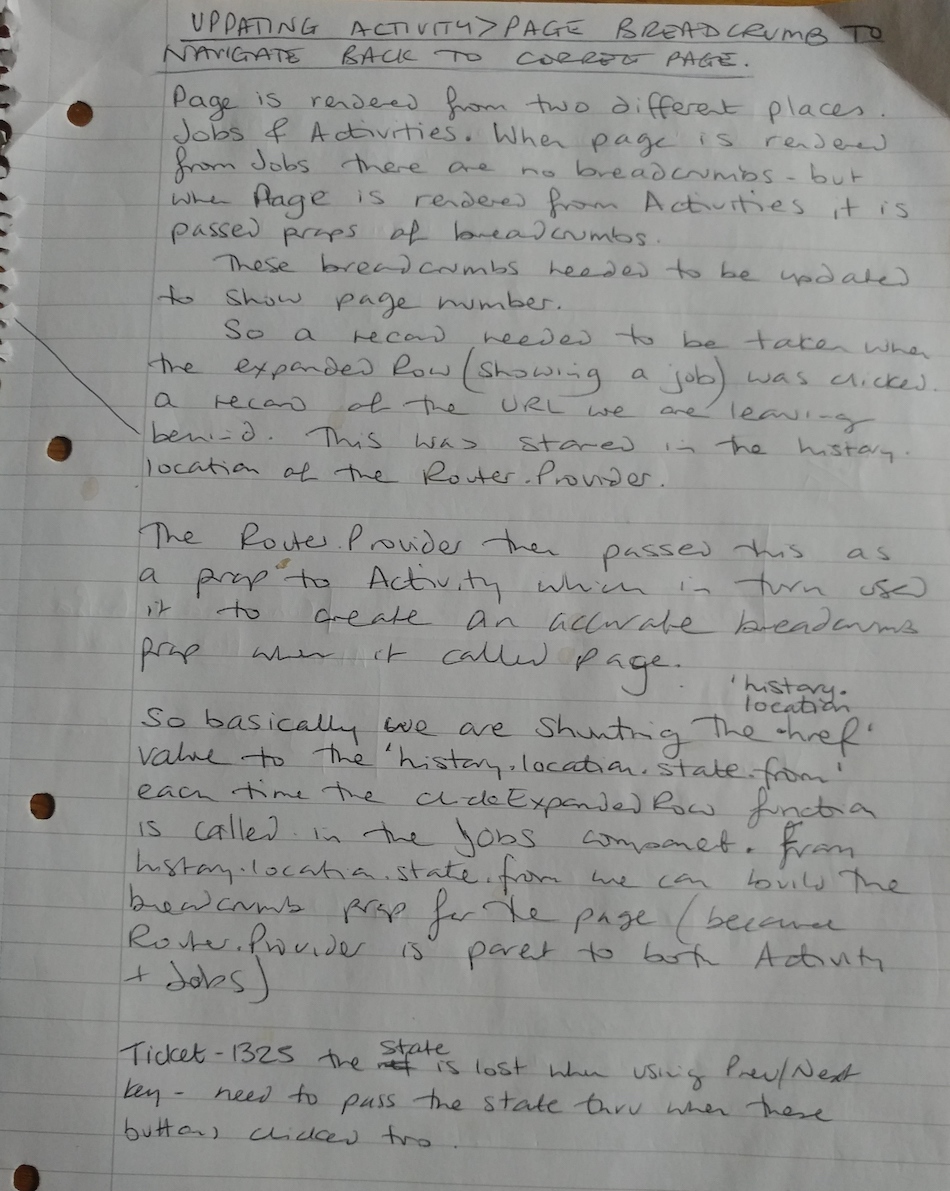 UPPDATING ACTIVITY>PAGE BREADCRUMB TO
NAVIGATE BACK TO CORRECT PAGE.
Page is rendered from two different places.
Jobs & Activities. When page is rendered
from Jobs there are no breadcrumbs - but
when Page is rendered from Activities it is
passed props of breadcrumbs.
These breadcrumbs needed to be updated
to show page number.
So a record needed to be taken when
the expanded Row (showing a job) was clicked.
a record of the URL we are leaving
behind. This was stored in the history.
location of the Router.Provider.
The Router.Provider then passed this as
a prop to Activity which in turn used
it to create an accurate breadcrumb
prop when it called Page.
'history.
location
So basically we are shunting The href'
value to the 'history.location.state.from'
each time the clickExpandedRow function
is called in the Jobs componet. From
history.location.state.from we can build the
breadcrumb prop for the page (because
Router.Provider is parent to both Activity
+ Jobs)
State
Ticket-1325 the is lost when using Prev/Next
key - need to pass the state thru when these
buttons clicked too.